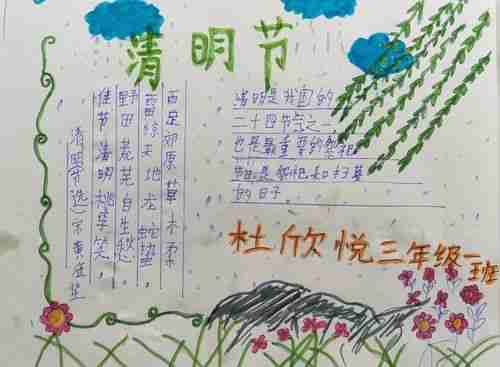 清明节
清明(节选)宋黄庭坚
佳节清明桃李笑，
野田荒芜自生愁。
雷惊天地龙蛇蛰，
雨足郊原草木柔
清明是我国的
二十四节气之一
也是最重要的祭祀
是祭祀和扫墓
的日子
杜欣悦三年级一班